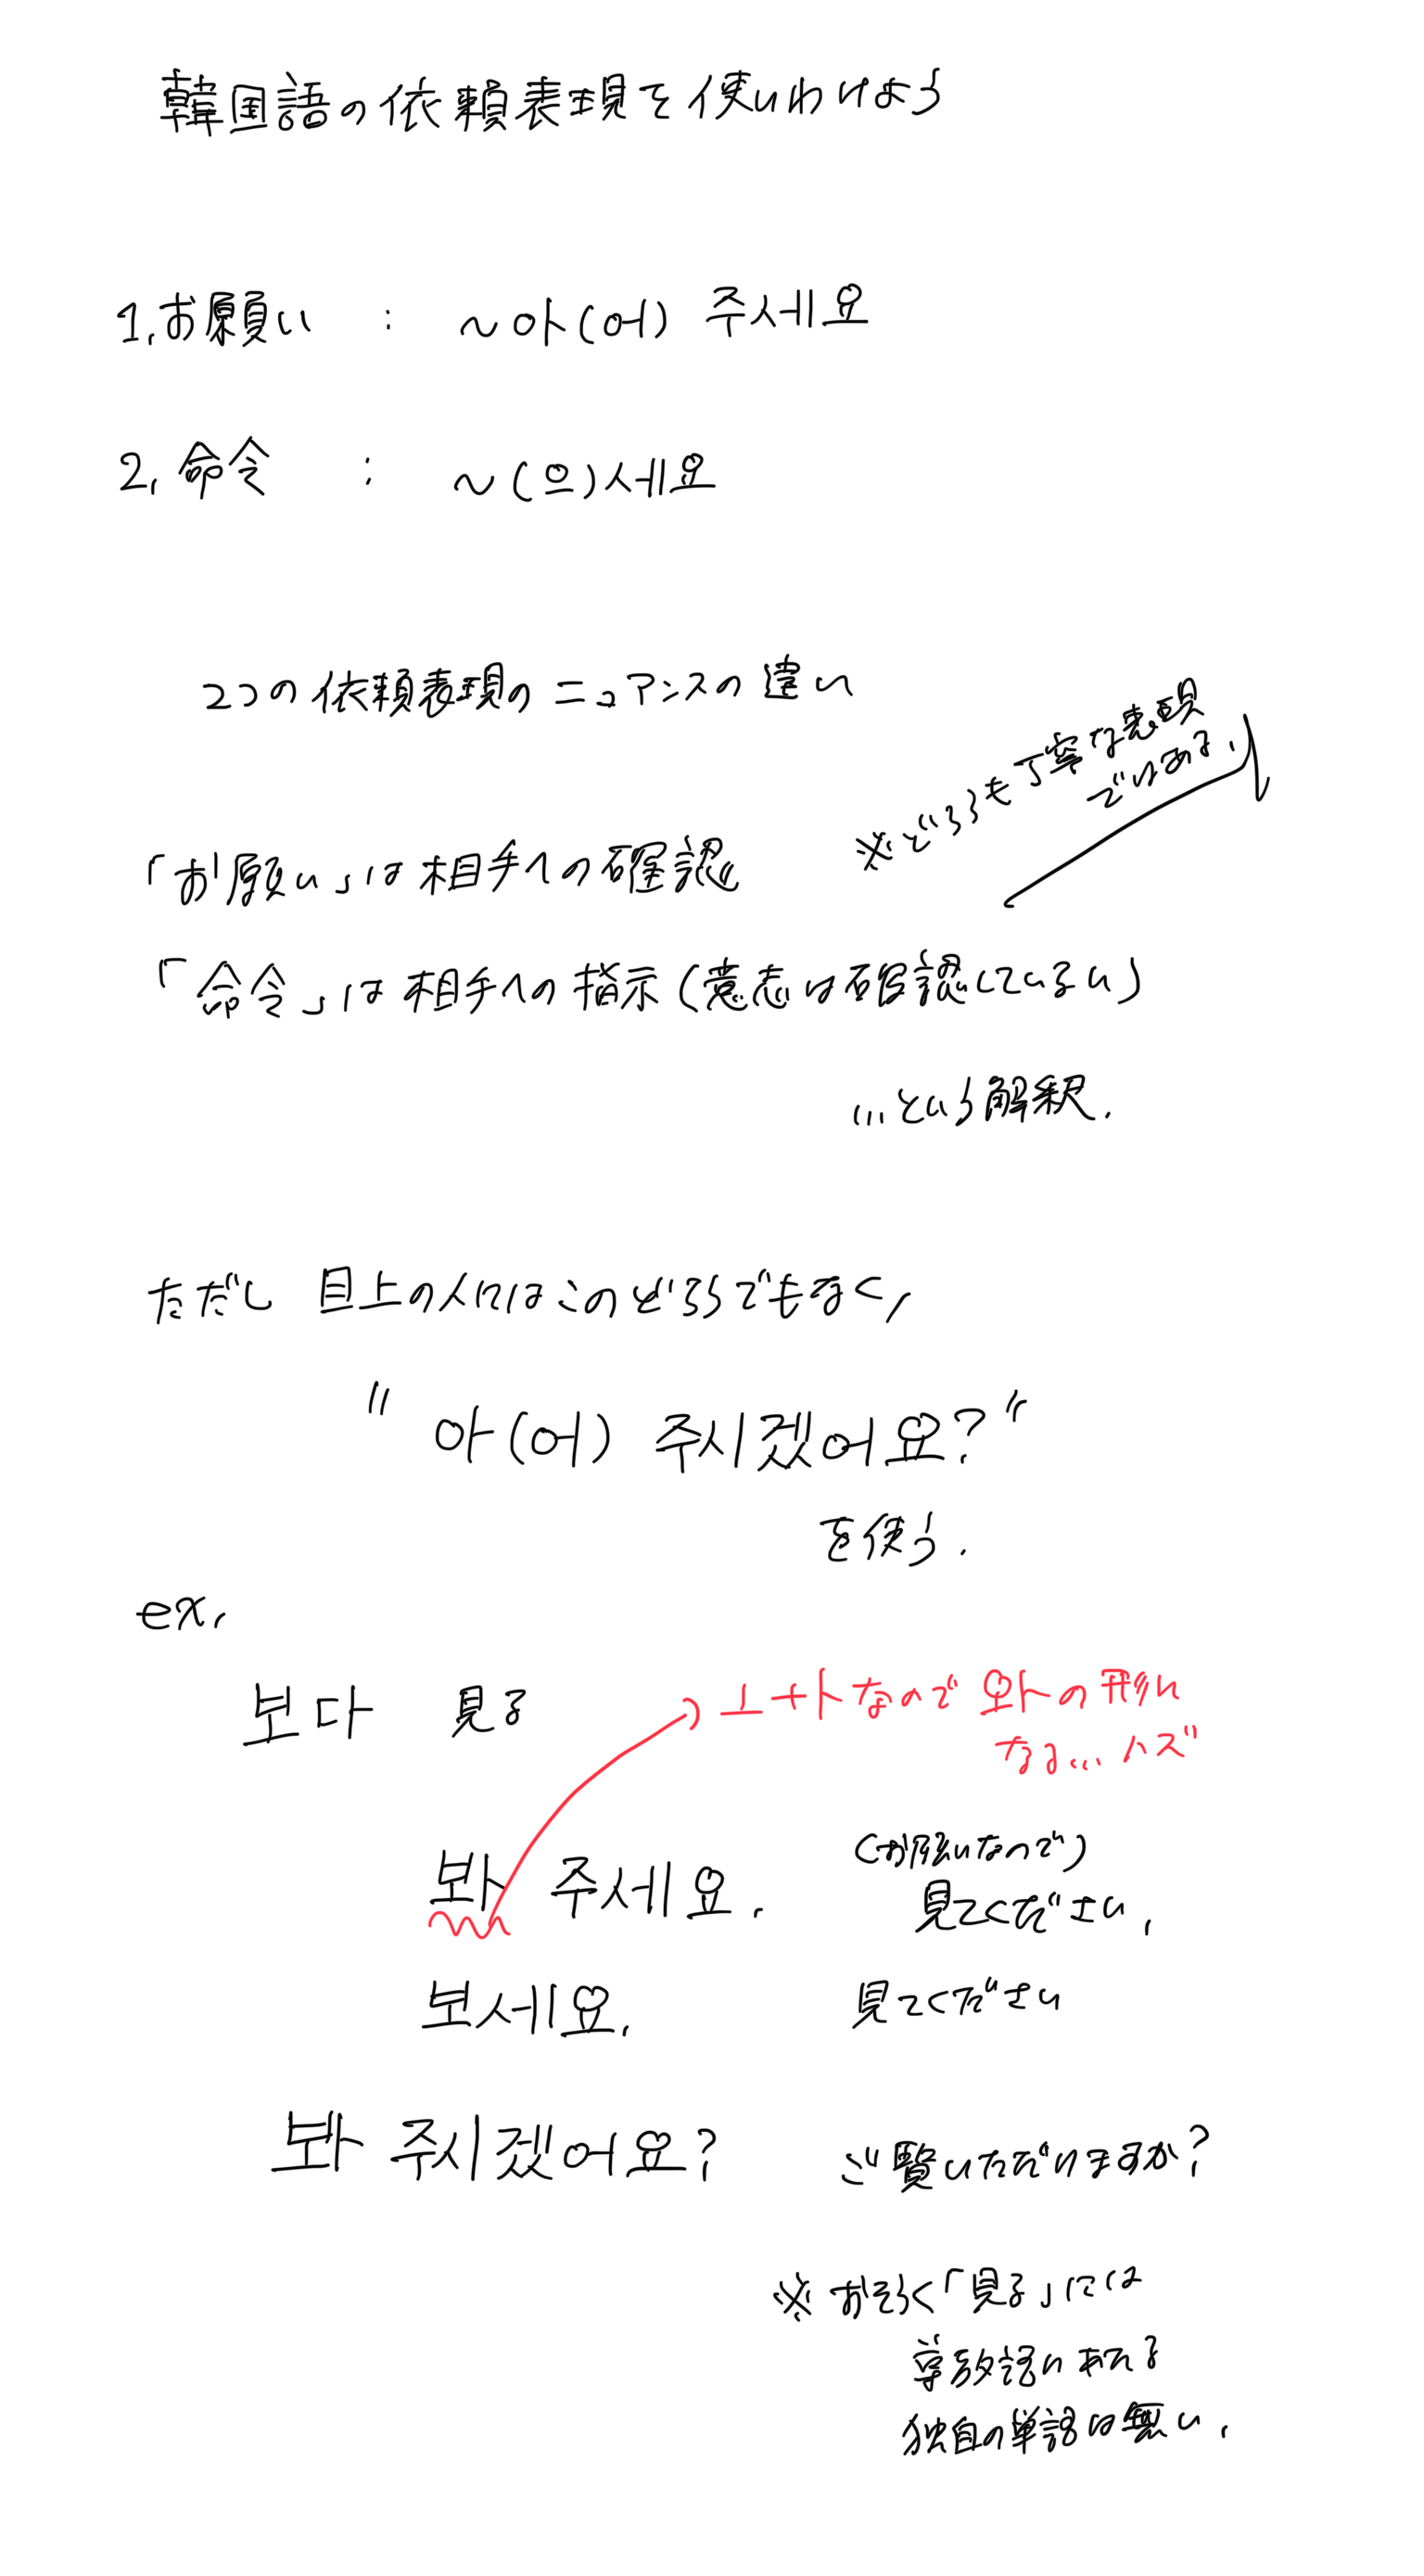 韓国語の依頼表現を使いわけよう
1.お願い : ～아(어) 주세요
2. 命令 : ～(으)세요
2つの依頼表現のニュアンスの違い
※どちらも丁寧な表現
ではある.
「お願い」は相手への確認
「命令」は相手への指示(意志は確認していない)
...という解釈.
ただし 目上の人にはこのどちらでもなく,
" 아(어) 주시겠어요? "
を使う.
ex.
보다 見る
ㅗ+ㅏなので 와の形に
なる... ハズ
봐 주세요. (お願いなので)
見てください.
보세요. 見てください
봐 주시겠어요? ご覧いただけますか?
※ おそらく「見る」には
尊敬語にあたる
独自の単語は無い.